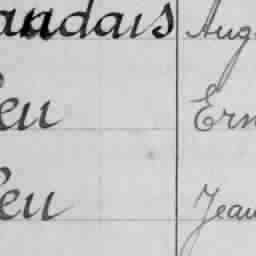 andais Aug
eu Ern
eu Jean